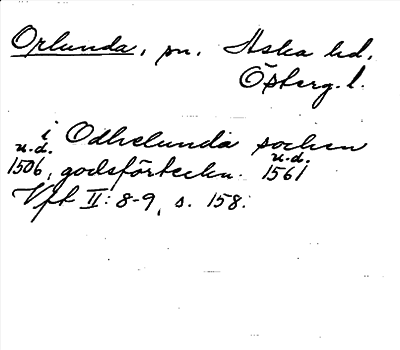 Orlunda, sn. Aska hd.
Östberg. l.
i Odhelunda socken
u.d. u.d.
1506, godsförteckn. 1561
Vft II: 8-9, s. 158.